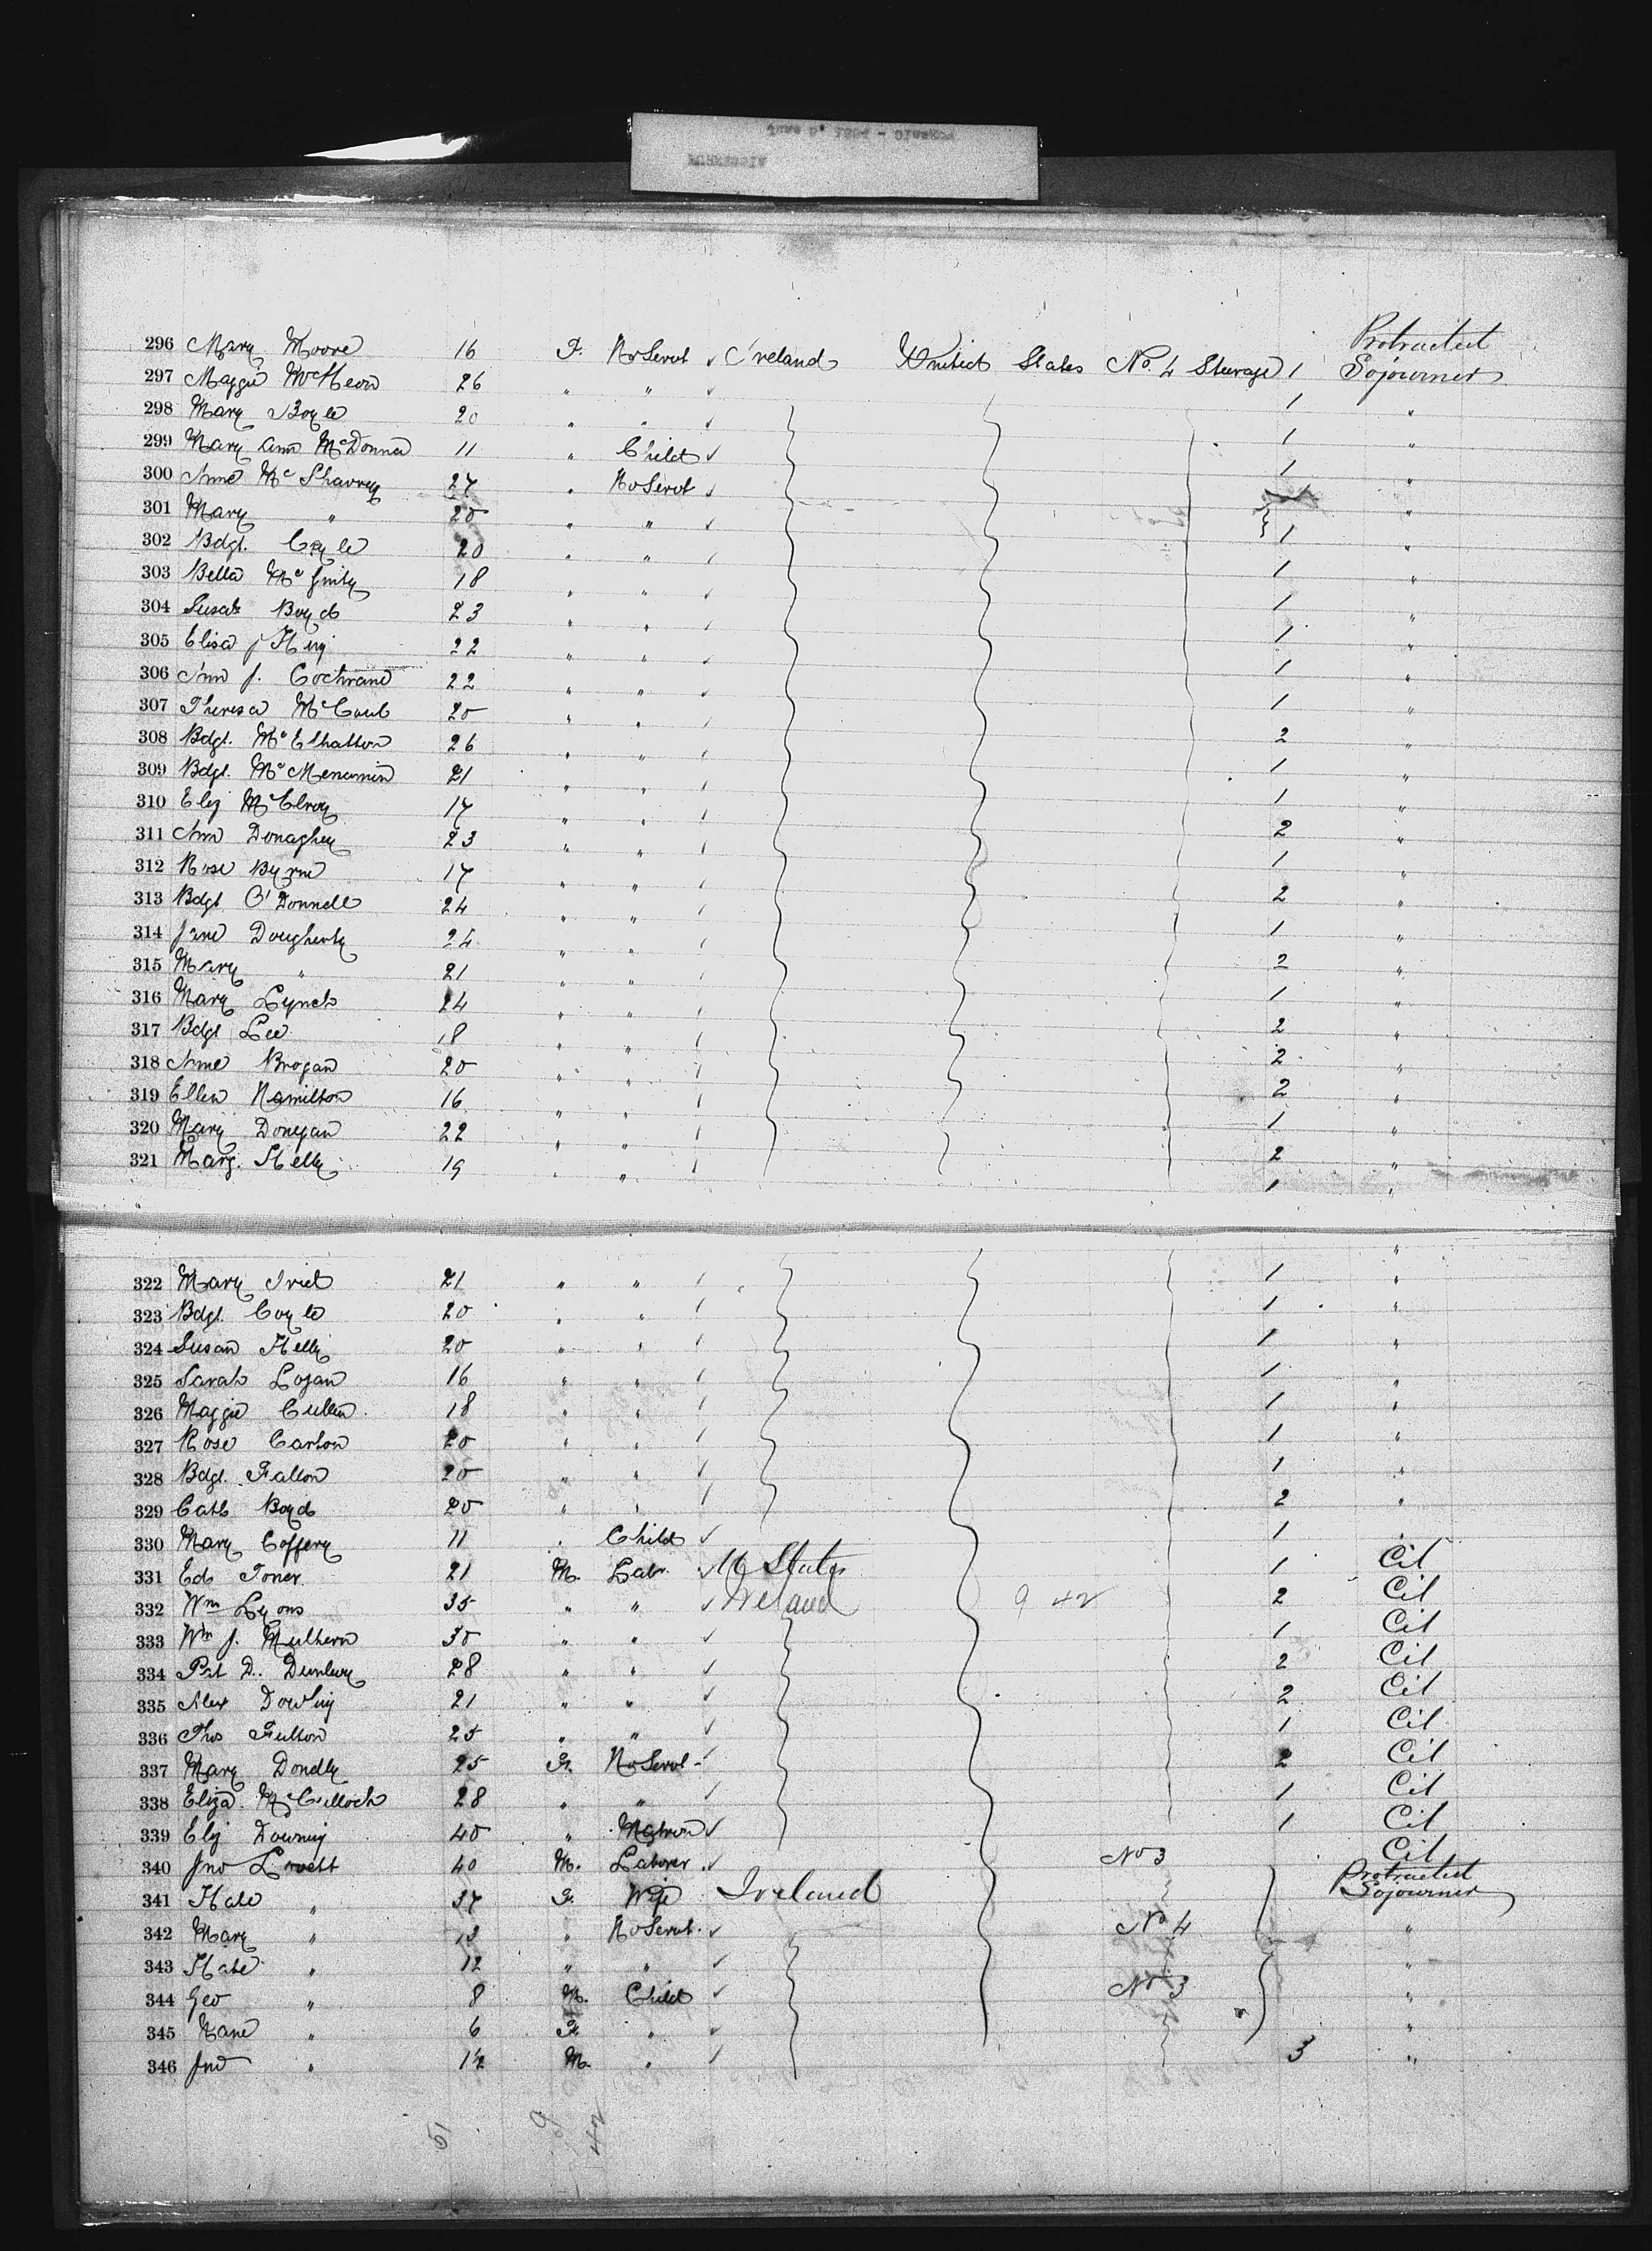 296 Mary Moore 16 F. Ho Servt ✓ Ireland United States No. 4 Steerage 1 Protracted Sojourner
297 Maggie McKeon 26 " " ✓ 1 "
298 Mary Boyle 20 " " ✓ 1 "
299 Mary Ann McDonna 11 " Child ✓ 1 "
300 Anne Mc 27 " Ho Servt ✓ "
301 Mary " 20 " " ✓ 1 "
302 Bdgt. Coyle 20 " " ✓ 1 "
303 Bella McGinty 18 " " ✓ 1 "
304 Susan Boyd 23 " " ✓ 1 "
305 Elisa J King 22 " " ✓ 1 "
306 Ann J. Cochrane 22 " " ✓ 1 "
307 Theresa McCaul 20 " " ✓ 2 "
308 Bdgt. McElhatton 26 " " ✓ 1 "
309 Bdgt. McMenamin 21 " " ✓ 1 "
310 Eliz McElroy 17 " " ✓ 2 "
311 Ann Donaghey 23 " " ✓ 1 "
312 Rose Byrne 17 " " ✓ 2 "
313 Bdgt O'Donnell 24 " " ✓ 1 "
314 Jane Dougherty 24 " " ✓ 2 "
315 Mary " 21 " " ✓ 1 "
316 Mary Lynch 24 " " ✓ 2 "
317 Bdgt Lee 18 " " ✓ 2 "
318 Anne Brogan 20 " " ✓ 2 "
319 Ellen Hamilton 16 " " ✓ 1 "
320 Mary Donegan 22 " " ✓ 2 "
321 Marg. Kelly 19 " " ✓ 1 "
322 Mary Friel 21 " " ✓ 1 "
323 Bdgt. Coyle 20 " " ✓ 1 "
324 Susan Kelly 20 " " ✓ 1 "
325 Sarah Logan 16 " " ✓ 1 "
326 Maggie Cullen 18 " " ✓ 1 "
327 Rose Carton 20 " " ✓ 1 "
328 Bdgt. Fallon 20 " " ✓ 1 "
329 Cath Boyd 20 " " ✓ 2 "
330 Mary Coffery 11 " Child ✓ 1 "
331 Ed Toner 21 M. Labr. ✓ U States 1 Cit
332 Wm Lyons 35 " " ✓ Ireland 9 42 2 Cit
333 Wm J. Mulhern 30 " " ✓ 1 Cit
334 Pat D. Dunlevy 28 " " ✓ 2 Cit
335 Alex Dowling 21 " " ✓ 2 Cit
336 Thos Fulton 25 " " ✓ 1 Cit
337 Mary Donelly 25 F. Ho Servt ✓ 2 Cit
338 Eliza McCulloch 28 " " ✓ 1 Cit
339 Eliz Downing 40 " Matron ✓ 1 Cit
340 Jno 40 M. Laborer ✓ No 3 Cit
341 Kate " 37 F. Wife Ireland Protracted Sojourner
342 Mary " 13 " Ho Servt. ✓ No 4 "
343 Kate " 12 " " ✓ "
344 Geo " 8 M. Child ✓ No 3 "
345 Jane " 6 F. " ✓ "
346 Jno " 1½ M. " ✓ 3 "
51 9 42